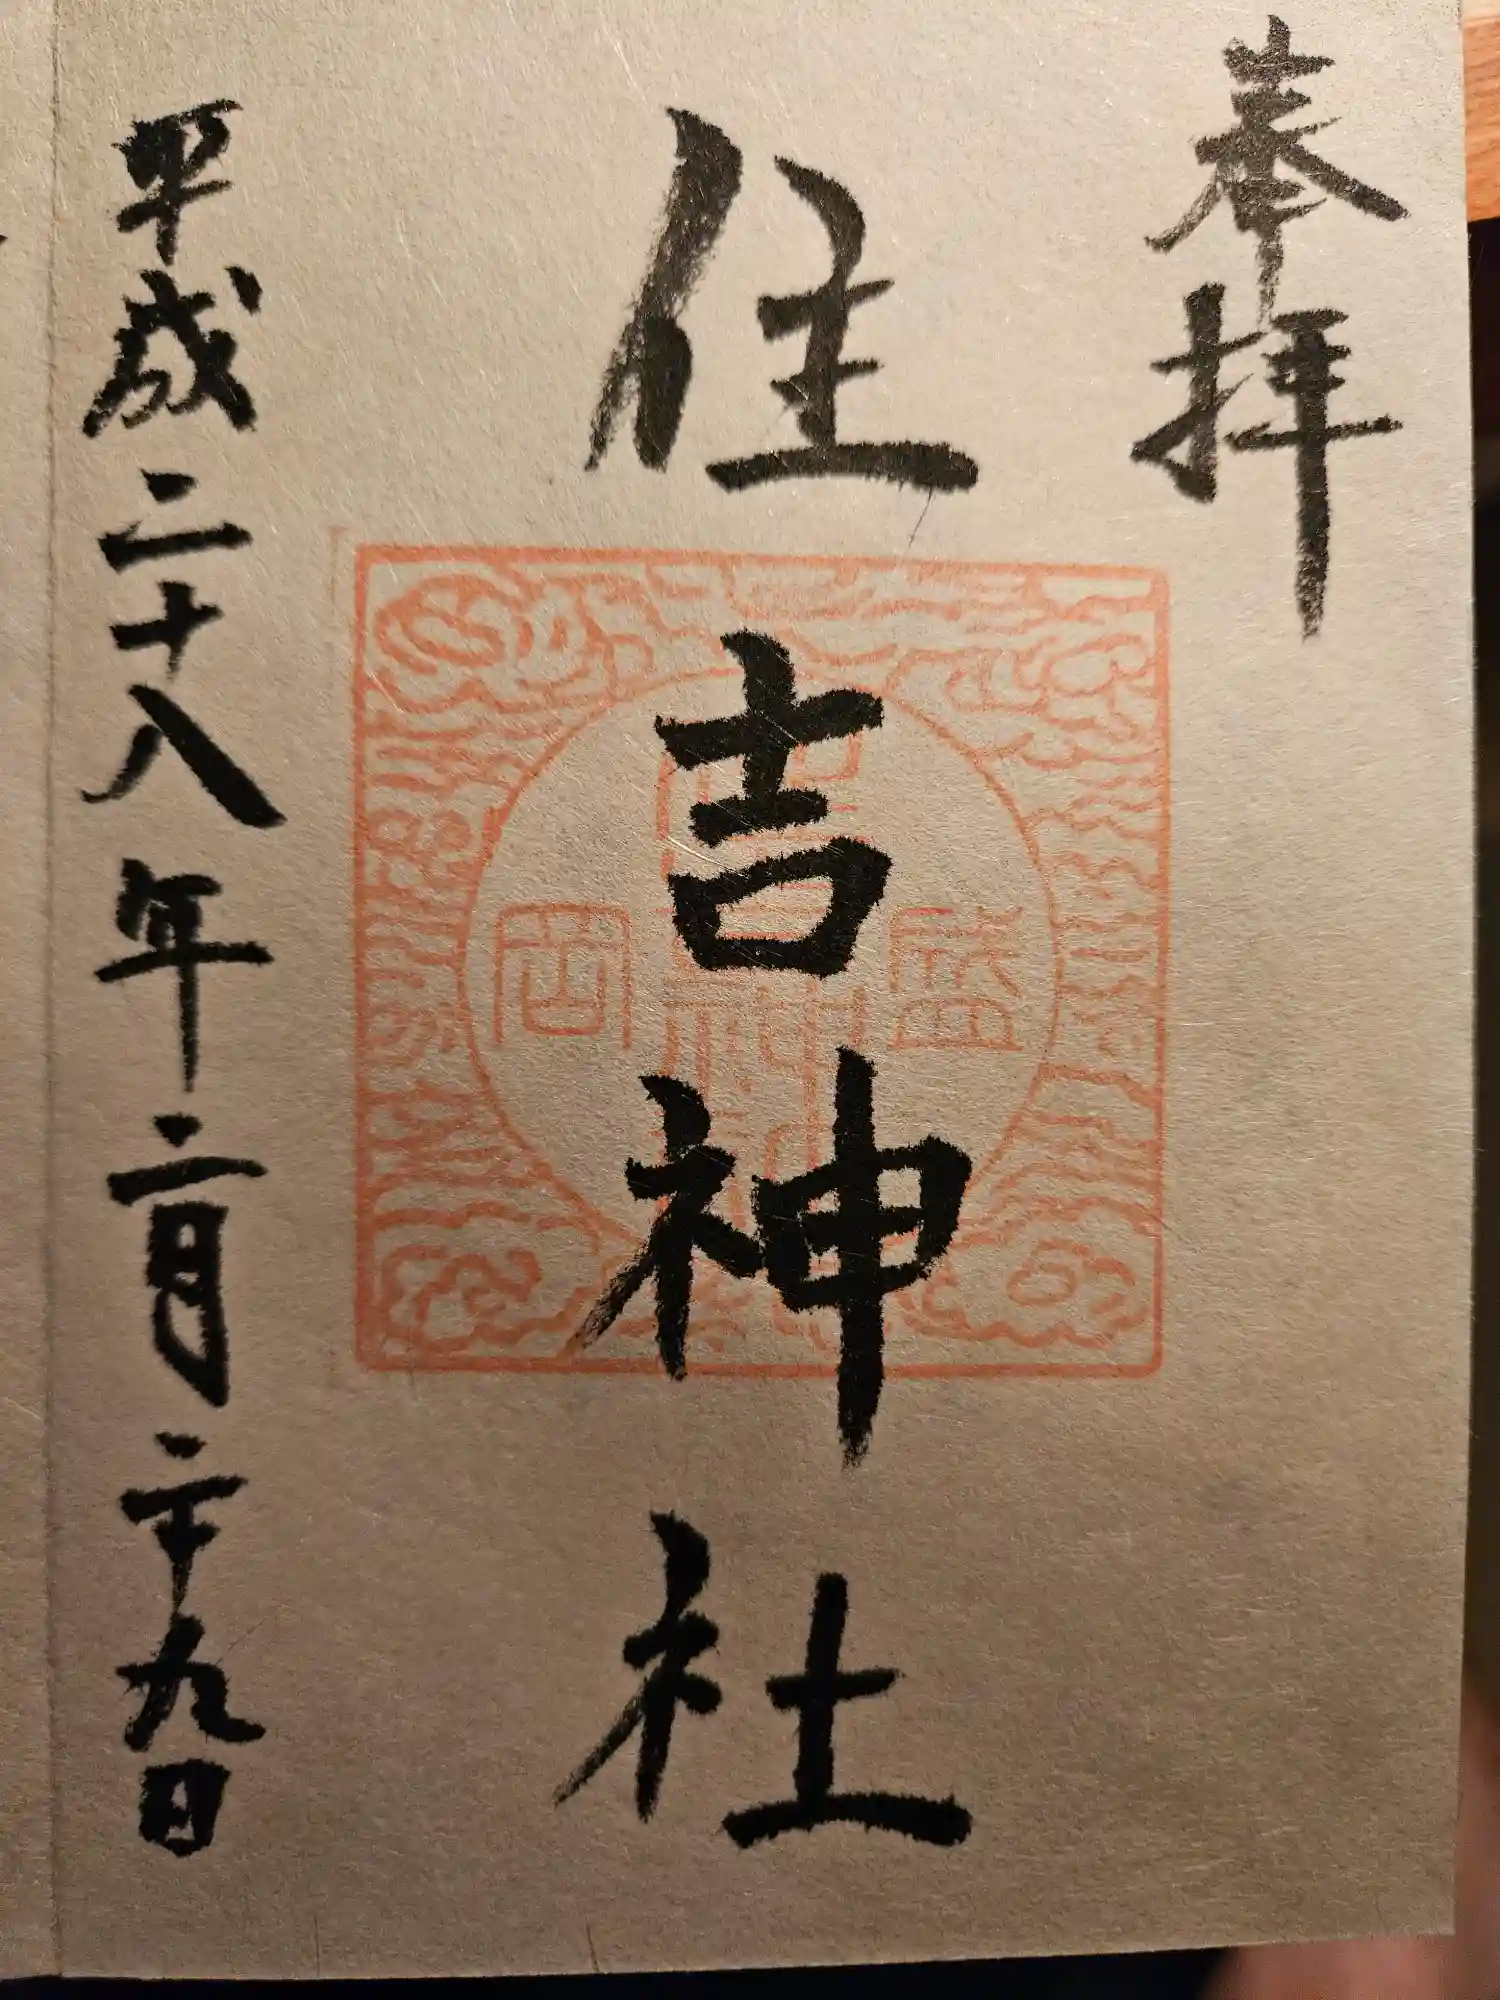 奉拝
住吉神社
盛岡
平成二十八年二月二十九日